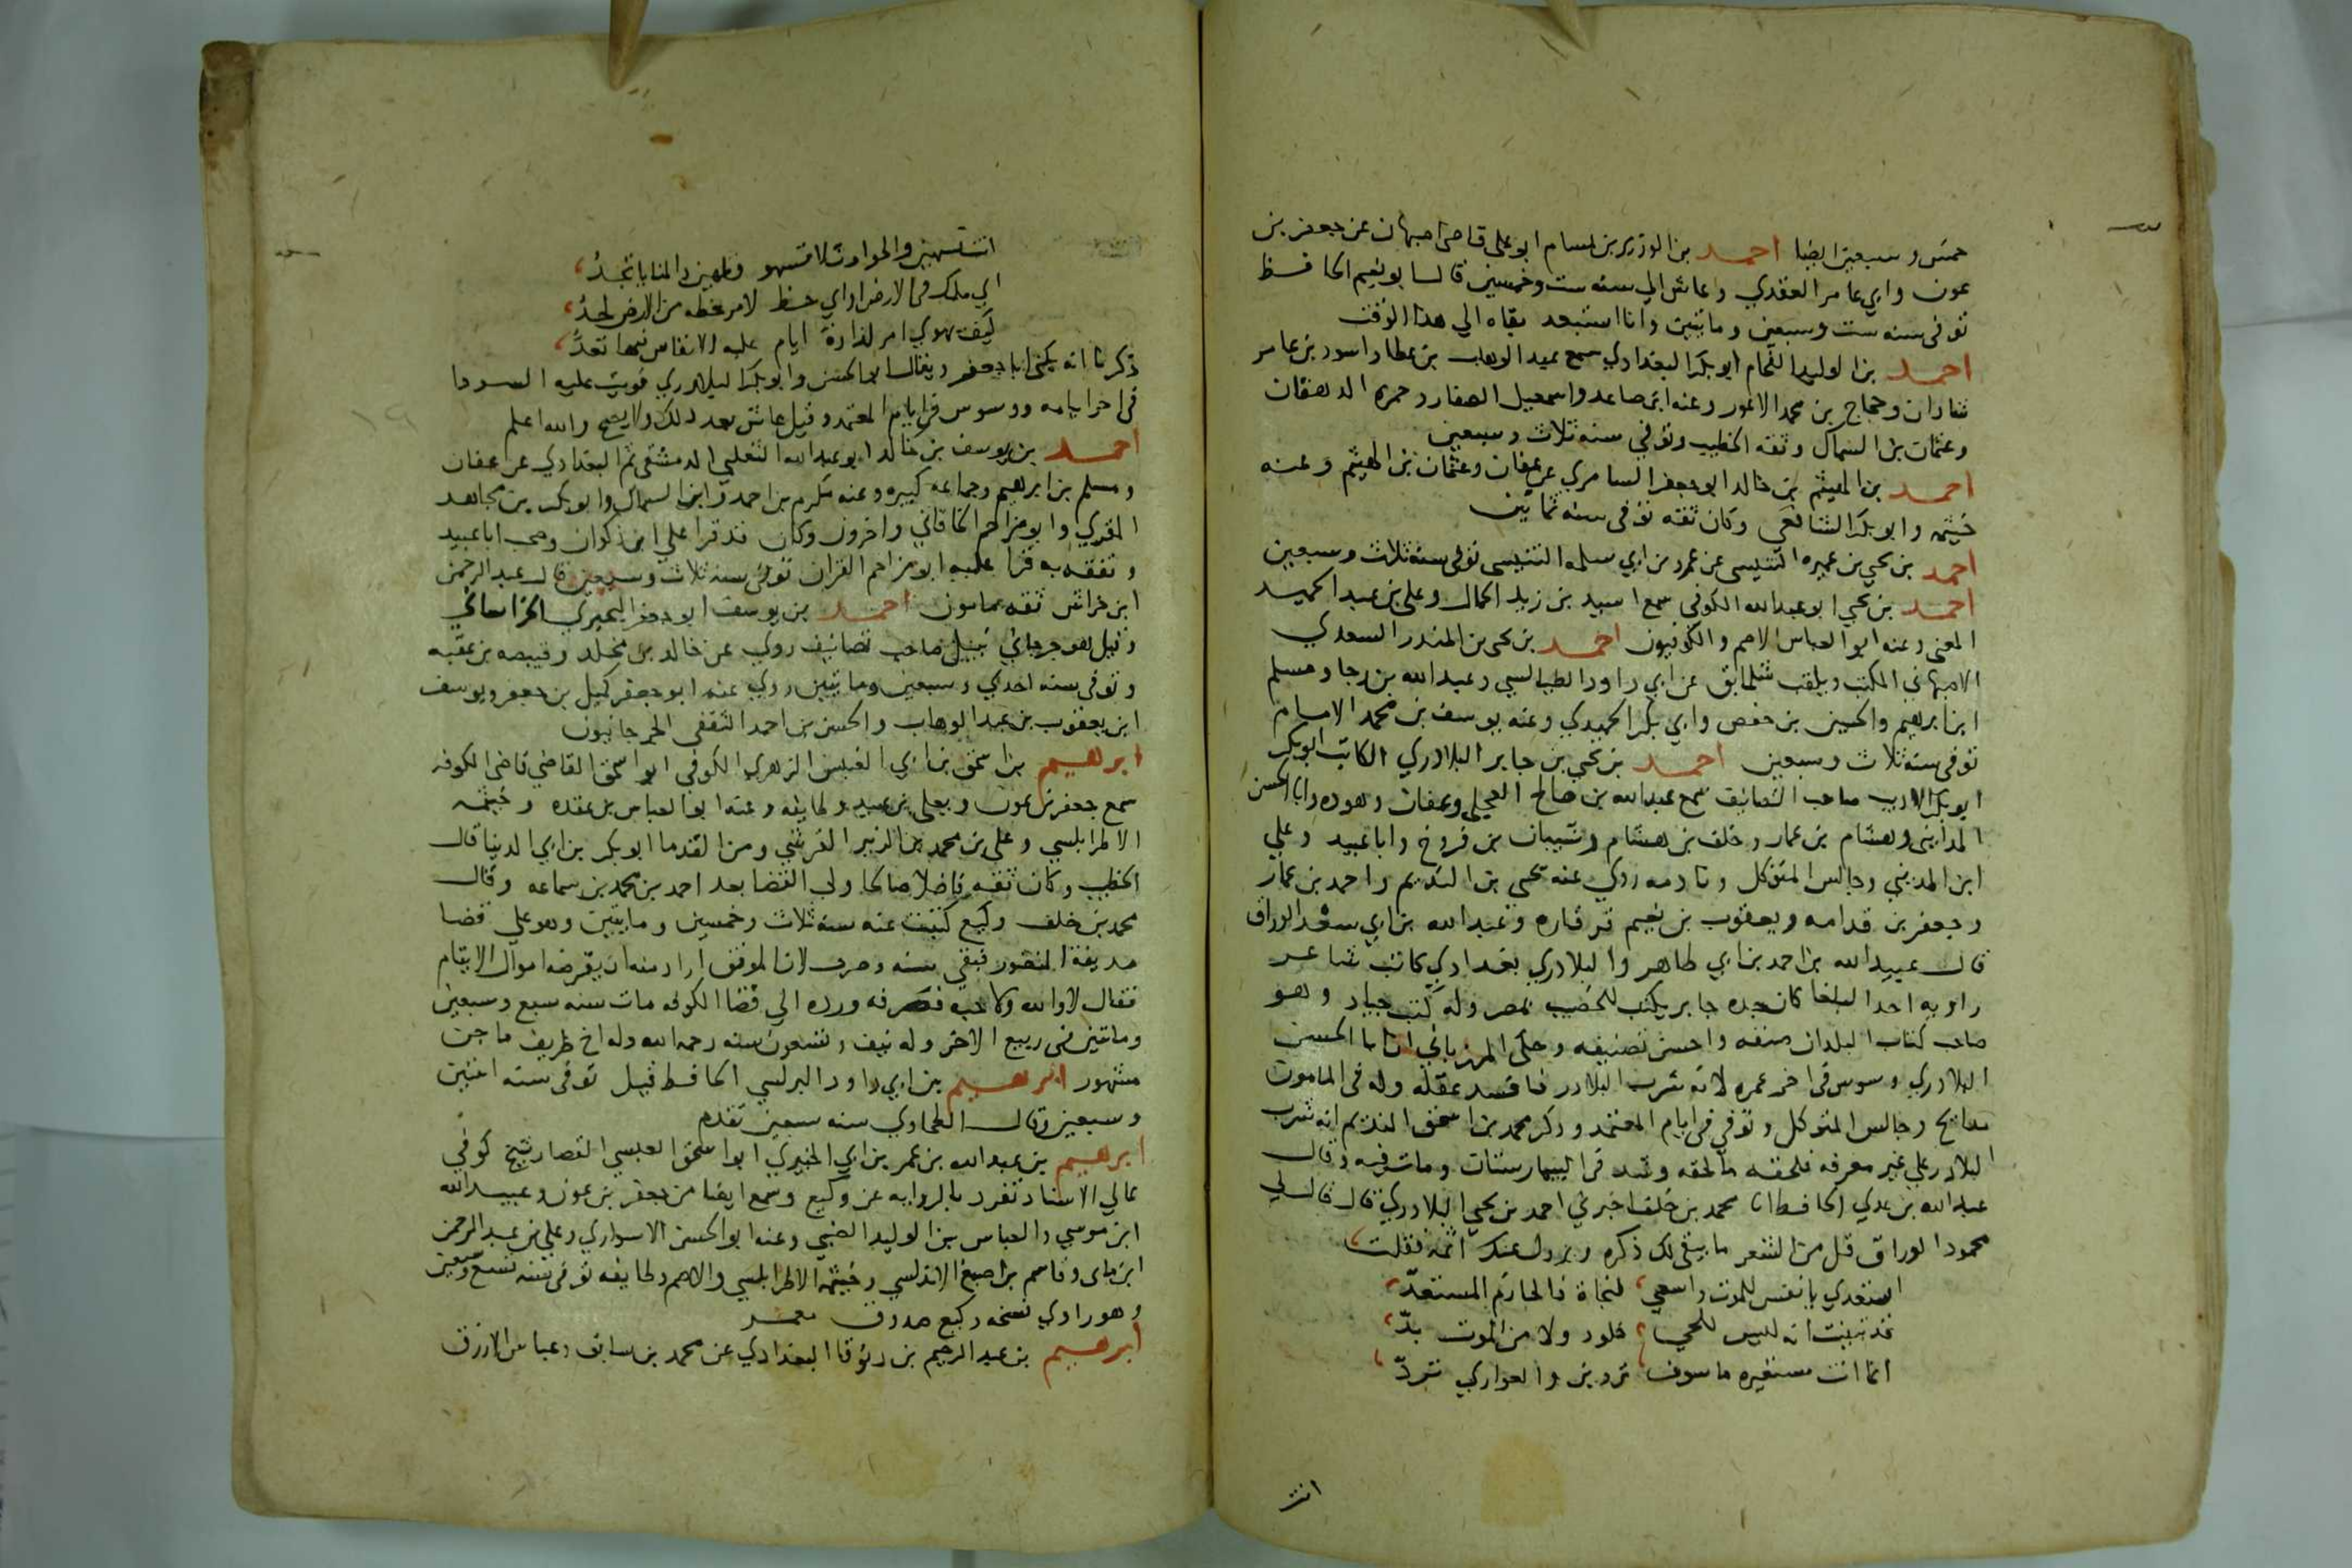 خمس وسبعين ايضا احمد بن الوزير بن بسام ابو علي قاضي اصبهان عن جعفر بن
عون وابي عامر العقدي وعاش الي سنه ست وخمسين قال ابو نعيم الحافظ
توفي سنه ست وسبعين وماتين وانا استبعد بقاه الي هذا الوقت
احمد بن الوليد الفحام ابو بكر البغدادي سمع عبد الوهاب بن عطا واسود بن عامر
شاذان وحجاج بن محمد الاعور وعنه ابن صاعد واسمعيل الصفار وحمزه الدهقان
وعثمان بن السماك وثقه الخطيب وتوفي سنه ثلاث وسبعين
احمد بن الهيثم بن خالد ابو جعفر السامري عن عفان وعثمان بن الهيثم وعنه
خيثمه وابو بكر الشافعي وكان ثقه توفي سنه ثمانين
احمد بن يحيي بن عميره التنيسي عن عمرو بن ابي سلمه التنيسي توفي سنه ثلاث وسبعين
احمد بن يحيي ابو عبد الله الكوفي سمع اسيد بن زيد الجمال وعلي بن عبد الحميد
المعني وعنه ابو العباس الاصم والكوفيون احمد بن يحيى بن المنذر السعدي
الاصبهاني المكتب ويلقب عن ابي داود الطيالسي وعبد الله بن رجا ومسلم
ابن ابرهيم والحسين بن حفص وابي بكر الحميدي وعنه يوسف بن محمد الامام
توفي سنه ثلاث وسبعين احمد بن يحيي بن جابر البلادري الكاتب ابو بكر
ابو بكر الاديب صاحب التصانيف سمع عبد الله بن صالح العجلي وعفان وهوده وابا الحسن
المدايني وهشام بن عمار وخلف بن هشام وشيبان بن فروخ وابا عبيد وعلي
ابن المديني وجالس المتوكل ونادمه روي عنه يحيى بن النديم واحمد بن عمار
وجعفر بن قدامه ويعقوب بن نعيم قرقاره وعبد الله بن ابي سعد الوراق
قال عبيد الله بن احمد بن ابي طاهر والبلادري بغدادي كاتب شاعر
راويه احد البلغا كان جده جابر يكتب للخصيب بمصر وله كتب جياد وهو
صاحب كتاب البلدان صنفه واحسن تصنيفه وحكي المرزباني ان ابا الحسن
البلادري وسوس في اخر عمره لانه شرب البلادر فافسد عقله وله في المامون
مدايح وجالس المتوكل وتوفي في ايام المعتمد وذكر محمد بن اسحق النديم انه شرب
البلادر علي غير معرفه فلحقه ما لحقه وشد في البيمارستان ومات فيه وقال
عبد الله بن عدي الحافظ انا محمد بن خلف اخبرني احمد بن يحيي البلادري قال قال لي
محمود الوراق قل من الشعر ما يبقى لك ذكره ويزول عنك اثمه فقلت
استعدي يا نفس للموت واسعي لنجاة فالحازم المستعدّ
قد تبينت انه ليس للحي خلود ولا من الموت بدّ
انما انت مستعيره ما سوف تردين والعواري تردّ
انت
انت تسهين والحوادث لا تسهو وتلهين والمنايا تجدُّ
اي ملك في الارض او اي حظ لامر حظه من الارض لحدُ
كيف يهوي امر لذاذة ايام عليه الانفاس فيها تعدُّ
ذكرنا انه يكنى ابا جعفر ويقال ابو الحسن وابو بكر البلادري قويت عليه السودا
في اخر ايامه ووسوس في ايام المعتمد وقيل عاش بعد ذلك ولا يصح والله اعلم
احمد بن يوسف بن خالد ابو عبد الله التغلبي الدمشقي ثم البغدادي عن عفان
ومسلم بن ابرهيم وجماعه كبيره وعنه مكرم بن احمد وابن السماك وابو بكر بن مجاهد
المقري وابو مزاحم الخاقاني واخرون وكان قد قرا علي ابن ذكوان وصحب ابا عبيد
وتفقه به قرا عليه ابو مزاحم القران توفي سنه ثلاث وسبعين قال عبد الرحمن
ابن خراش ثقه مامون احمد بن يوسف ابو جعفر البحيري الخراساني
وقيل هو جرجاني نبيل صاحب تصانيف روي عن خالد بن مخلد وقبيصه بن عقبه
وتوفي سنه احدي وسبعين وماتين روي عنه ابو جعفر كميل بن جعفر ويوسف
ابن يعقوب بن عبد الوهاب والحسن بن احمد الثقفي الجرجانيون
ابرهيم بن اسحق بن ابي العنبس الزهري الكوفي ابو اسحق القاضي قاضي الكوفه
سمع جعفر بن عون ويعلى بن عبيد وطايفه وعنه ابو العباس بن عقده وخيثمه
الاطرابلسي وعلي بن محمد بن الزبير القرشي ومن القدما ابو بكر بن ابي الدنيا قال
الخطيب وكان ثقه فاضلا صالحا ولي القضا بعد احمد بن محمد بن سماعه وقال
محمد بن خلف وكيع كتبت عنه سنه ثلاث وخمسين وماتين وهو علي قضا
مدينة المنصور فبقي سنه وصرف لان الموفق اراد منه ان يقرضه اموال الايتام
فقال لا والله ولا حبه فصرفه ورده الي قضا الكوفه مات سنه سبع وسبعين
وماتين في ربيع الاخر وله نيف وتسعون سنه رحمه الله وله اخ ظريف ماجن
مشهور ابرهيم بن ابي داود البرلسي الحافظ قيل توفي سنه اثنين
وسبعين وقال الطحاوي سنه سبعين تقدم
ابرهيم بن عبد الله بن عمر بن ابي الخيبري ابو اسحق العبسي القصار شيخ كوفي
عالي الاسناد تفرد بالروايه عن وكيع وسمع ايضا من جعفر بن عون وعبيد الله
ابن موسي والعباس بن الوليد الضبي وعنه ابو الحسن الاسواري وعلي بن عبد الرحمن
ابن ماتى وقاسم بن اصبغ الاندلسي وخيثمه الاطرابلسي والاصم وطايفه توفي سنه تسع وسبعين
وهو راوي نسخه وكيع صدوق معمر
ابرهيم بن عبد الرحيم بن دنوقا البغدادي عن محمد بن سابق وعباس الازرق